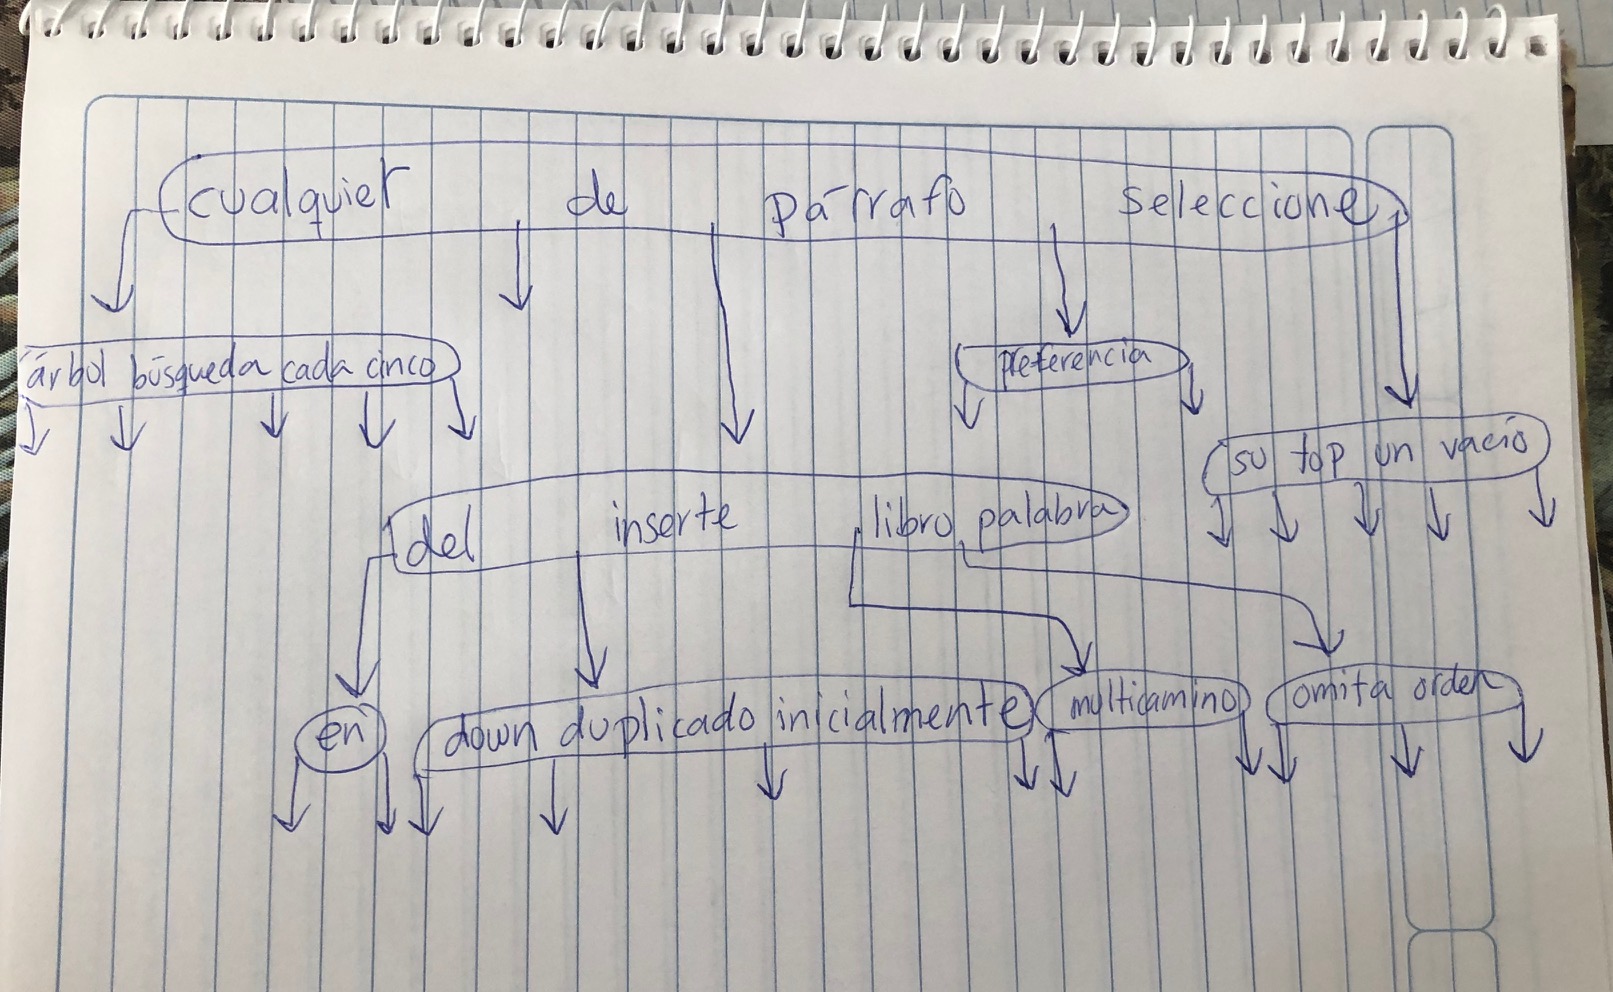 cualquier de párrafo seleccione
árbol búsqueda cada cinco
preferencia
su top un vacío
del inserte libro palabra
en
down duplicado inicialmente
multicamino
omita orden